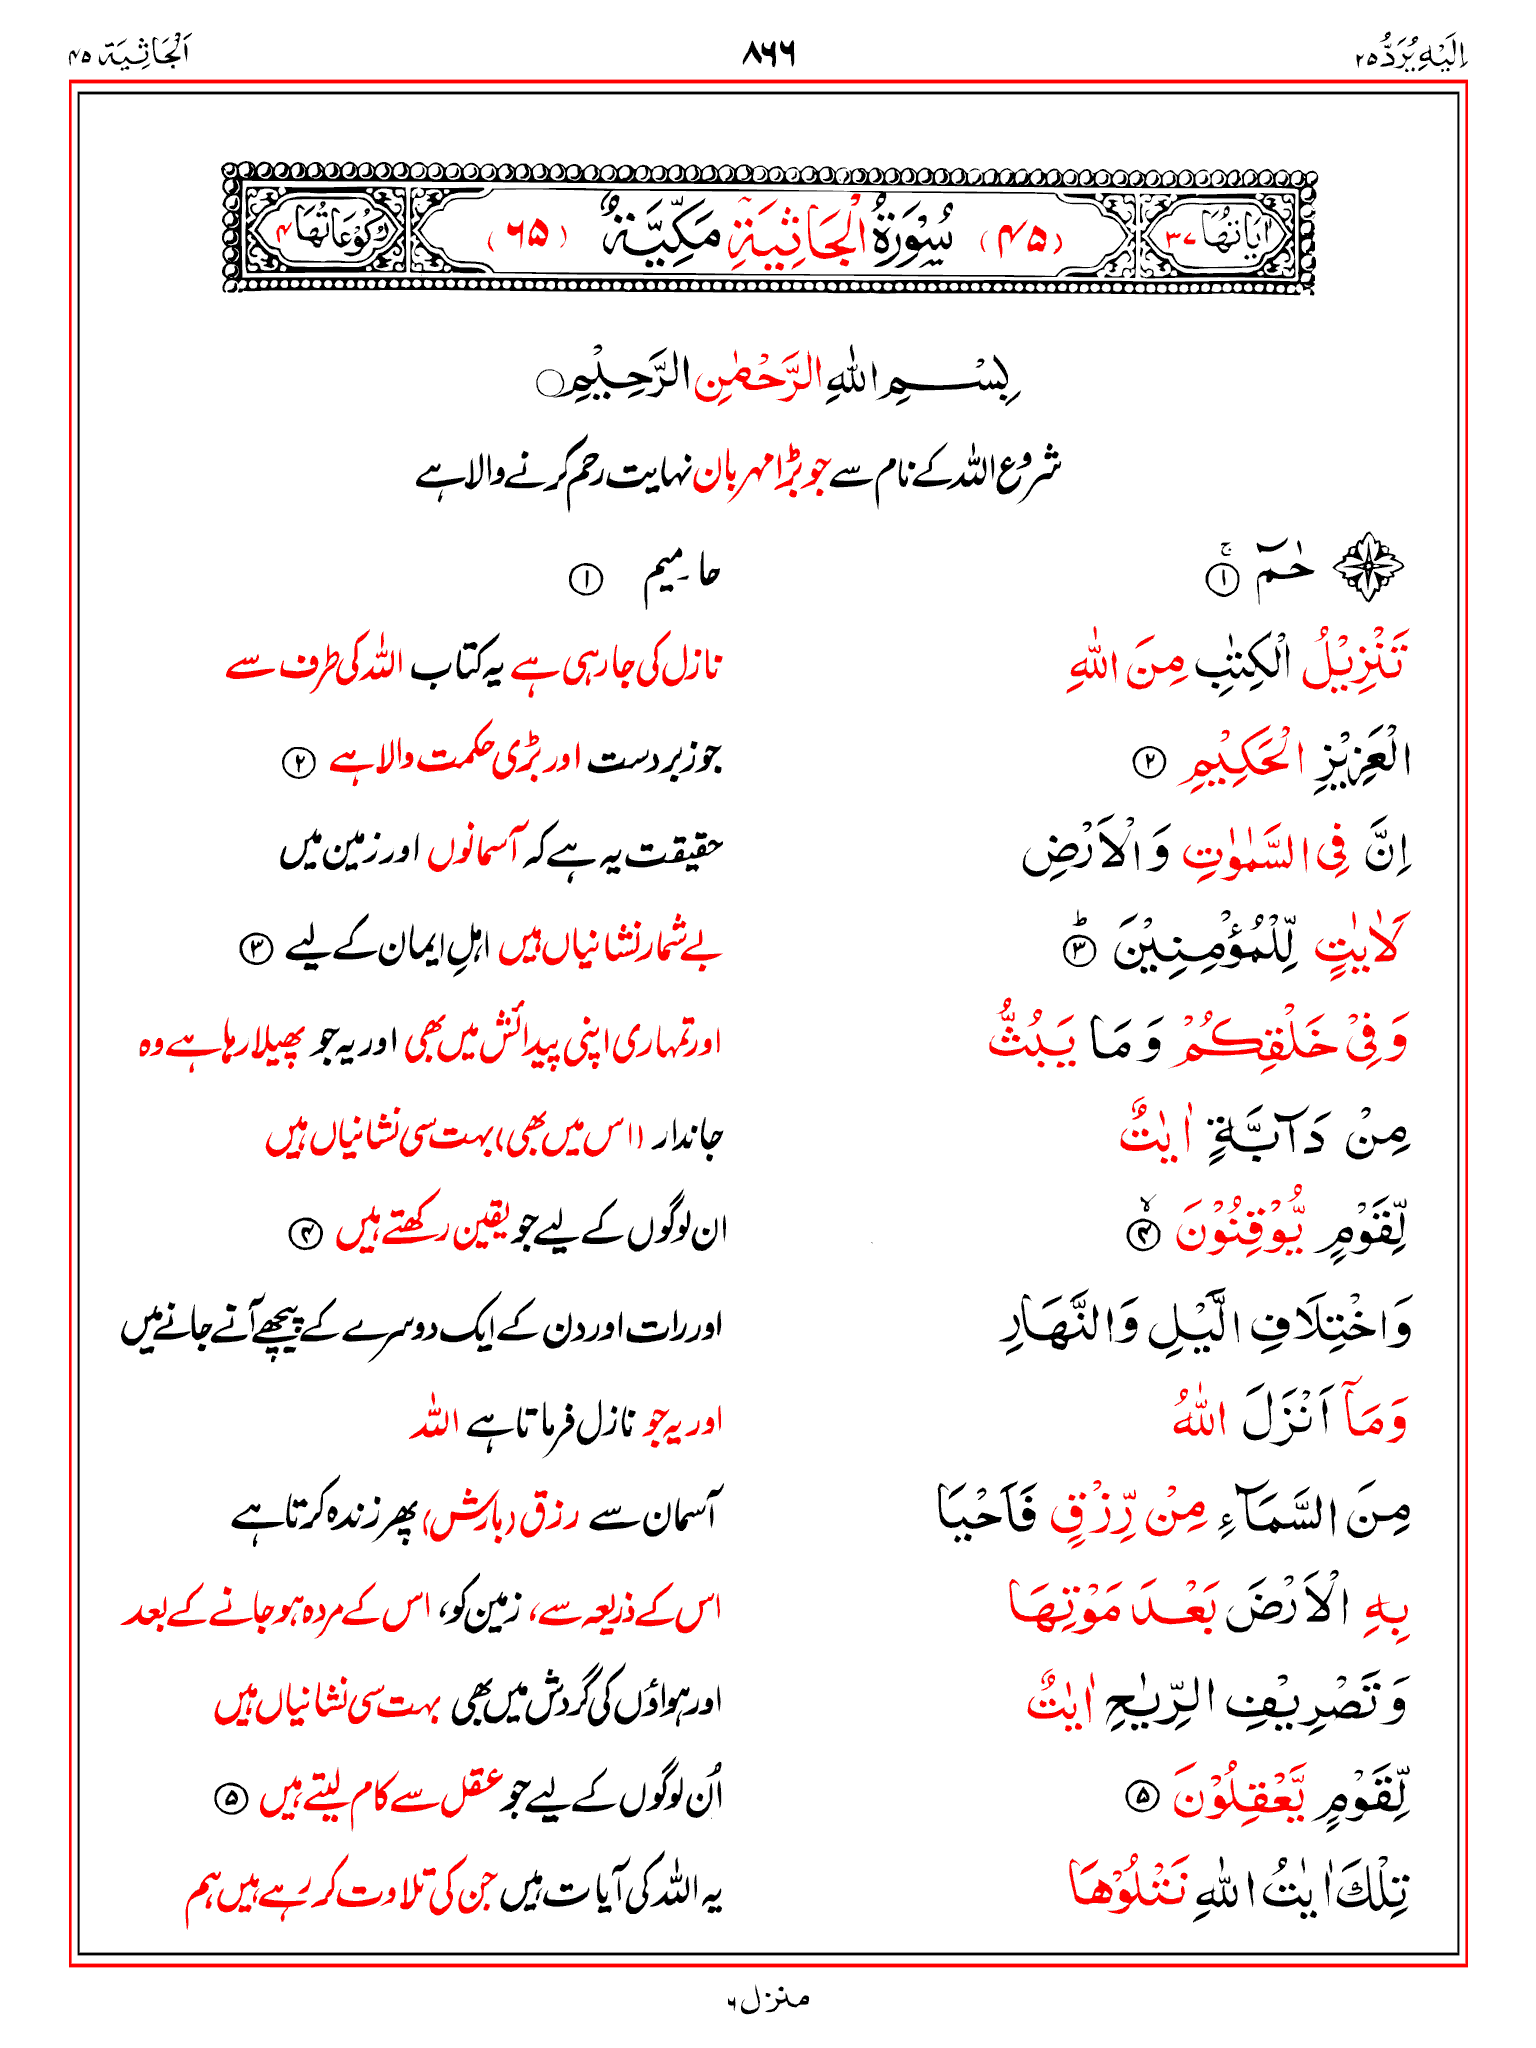 اِلَيْهِ يُرَدُّ ٢٥ ٨٦٦ اَلْجَاثِيَة ٤٥
اٰيَاتُهَا ٣٧ (٤٥) سُوْرَةُ الْجَاثِيَةِ مَكِّيَّةٌ (٦٥) رُكُوْعَاتُهَا ٤
بِسْمِ اللّٰهِ الرَّحْمٰنِ الرَّحِيْمِ○
شروع اللہ کے نام سے جو بڑا مہربان نہایت رحم کرنے والا ہے
حٰمٓ ۚ ① حا۔ میم ①
تَنْزِيْلُ الْكِتٰبِ مِنَ اللّٰهِ نازل کی جا رہی ہے یہ کتاب اللہ کی طرف سے
الْعَزِيْزِ الْحَكِيْمِ ② جو زبردست اور بڑی حکمت والا ہے ②
اِنَّ فِى السَّمٰوٰتِ وَالْاَرْضِ حقیقت یہ ہے کہ آسمانوں اور زمین میں
لَاٰيٰتٍ لِّلْمُؤْمِنِيْنَ ؕ ③ بے شمار نشانیاں ہیں اہلِ ایمان کے لیے ③
وَفِىْ خَلْقِكُمْ وَمَا يَبُثُّ اور تمہاری اپنی پیدائش میں بھی اور یہ جو پھیلا رہا ہے وہ
مِنْ دَآبَّةٍ اٰيٰتٌ جاندار (اس میں بھی) بہت سی نشانیاں ہیں
لِّقَوْمٍ يُّوْقِنُوْنَ ۙ ④ ان لوگوں کے لیے جو یقین رکھتے ہیں ④
وَاخْتِلَافِ الَّيْلِ وَالنَّهَارِ اور رات اور دن کے ایک دوسرے کے پیچھے آنے جانے میں
وَمَآ اَنْزَلَ اللّٰهُ اور یہ جو نازل فرماتا ہے اللہ
مِنَ السَّمَآءِ مِنْ رِّزْقٍ فَاَحْيَا آسمان سے رزق (بارش) پھر زندہ کرتا ہے
بِهِ الْاَرْضَ بَعْدَ مَوْتِهَا اس کے ذریعہ سے، زمین کو، اس کے مردہ ہو جانے کے بعد
وَتَصْرِيْفِ الرِّيٰحِ اٰيٰتٌ اور ہواؤں کی گردش میں بھی بہت سی نشانیاں ہیں
لِّقَوْمٍ يَّعْقِلُوْنَ ⑤ اُن لوگوں کے لیے جو عقل سے کام لیتے ہیں ⑤
تِلْكَ اٰيٰتُ اللّٰهِ نَتْلُوْهَا یہ اللہ کی آیات ہیں جن کی تلاوت کر رہے ہیں ہم
منزل ٦